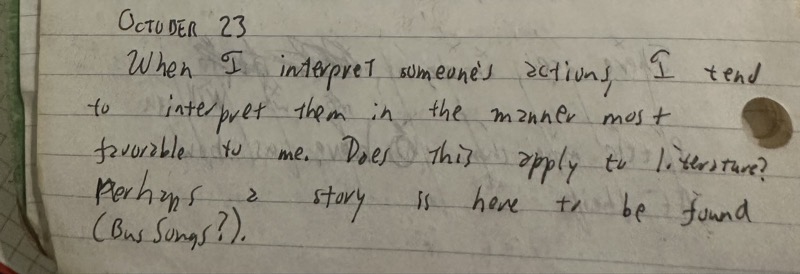 OCTOBER 23
When I interpret someone's actions, I tend
to interpret them in the manner most
favorable to me. Does this apply to literature?
Perhaps a story is here to be found
(Bus Songs?).